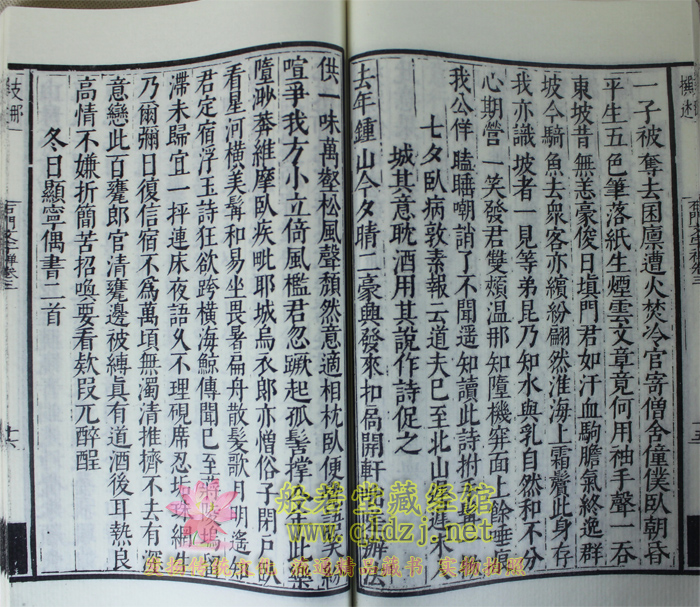 一子被奪去困廩遭火焚冷官寄僧舍僮僕臥朝昏
平生五色筆落紙生煙雲文章竟何用袖手聲一吞
東坡昔無恙豪俊日填門君如汗血駒膽氣終逸群
坡今騎魚去衆客亦繽紛翩然淮海上霜鬢此身存
我亦識坡者一見等弟昆乃知水與乳自然和不分
心期營一笑發君雙頰温那知障機穽面上餘垂痕
我公佯瞌睡嘲誚了不聞遥知讀此詩拊
七夕臥病敦素報云道夫已至北山遲未入
城其意耽酒用其説作詩促之
去年鍾山今夕晴二豪興發來扣扃開軒
供一味萬壑松風聲頽然意適相枕臥便
喧爭我方小立倚風檻君忽蹶起孤髻撑
墮渺莽維摩臥疾毗耶城烏衣郎亦憎俗子閉戶臥
看星河横美髯和易坐畏暑扁舟散髮歌月明遥知
君定宿浮玉詩狂欲跨横海鯨傳聞已至將
滯未歸宜一抨連床夜語久不理硯席忍垢
乃爾彌日復信宿不為萬頃無濁清推擠不去有深
意戀此百甕郎官清甕邊被縛真有道酒後耳熱良
高情不嫌折簡苦招喚要看欵段兀醉醒
冬日顯寧偶書二首
般若堂藏经馆
www.qldzj.com
流通精品藏书 实物拍照